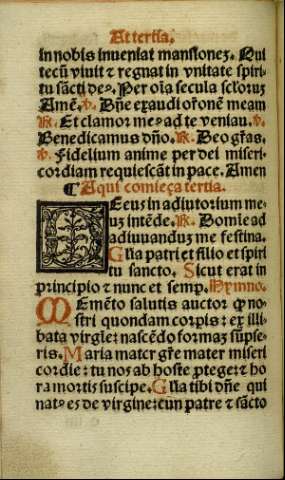 At tertia.
in nobis inueniat mansionez. Qui
tecũ viuit ⁊ regnat in vnitate spiri-
tu sãcti deꝰ. Per oĩa secula sclorus
Amẽ. ℣. Dñe exaudi orõnem meam
℟. Et clamor meꝰ ad te veniau. ℣.
Benedicamus dño. ℟. Deo grãs.
℣. Fidelium anime per dei miseri-
cordiam requiescãt in pace. Amen
¶ Aqui comiẽça tertia.
DEeus in adiutorium me-
uz intẽde. ℟. Domie ad
adiuuanduz me festina.
Glĩa patri et filio et spiri
tu sancto. Sicut erat in
principio ⁊ nunc et semp. Hymno.
MEmẽto salutis auctor ꝙ no-
stri quondam corpis: ex illi-
bata virgĩe: nascẽdo formaz sũpse-
ris. Maria mater grẽ mater miseri
cordie: tu nos ab hoste ꝓtege: ⁊ ho
ra mortis suscipe. Glĩa tibi dñe qui
natꝰ es de virgine: cun patre ⁊ sãcto